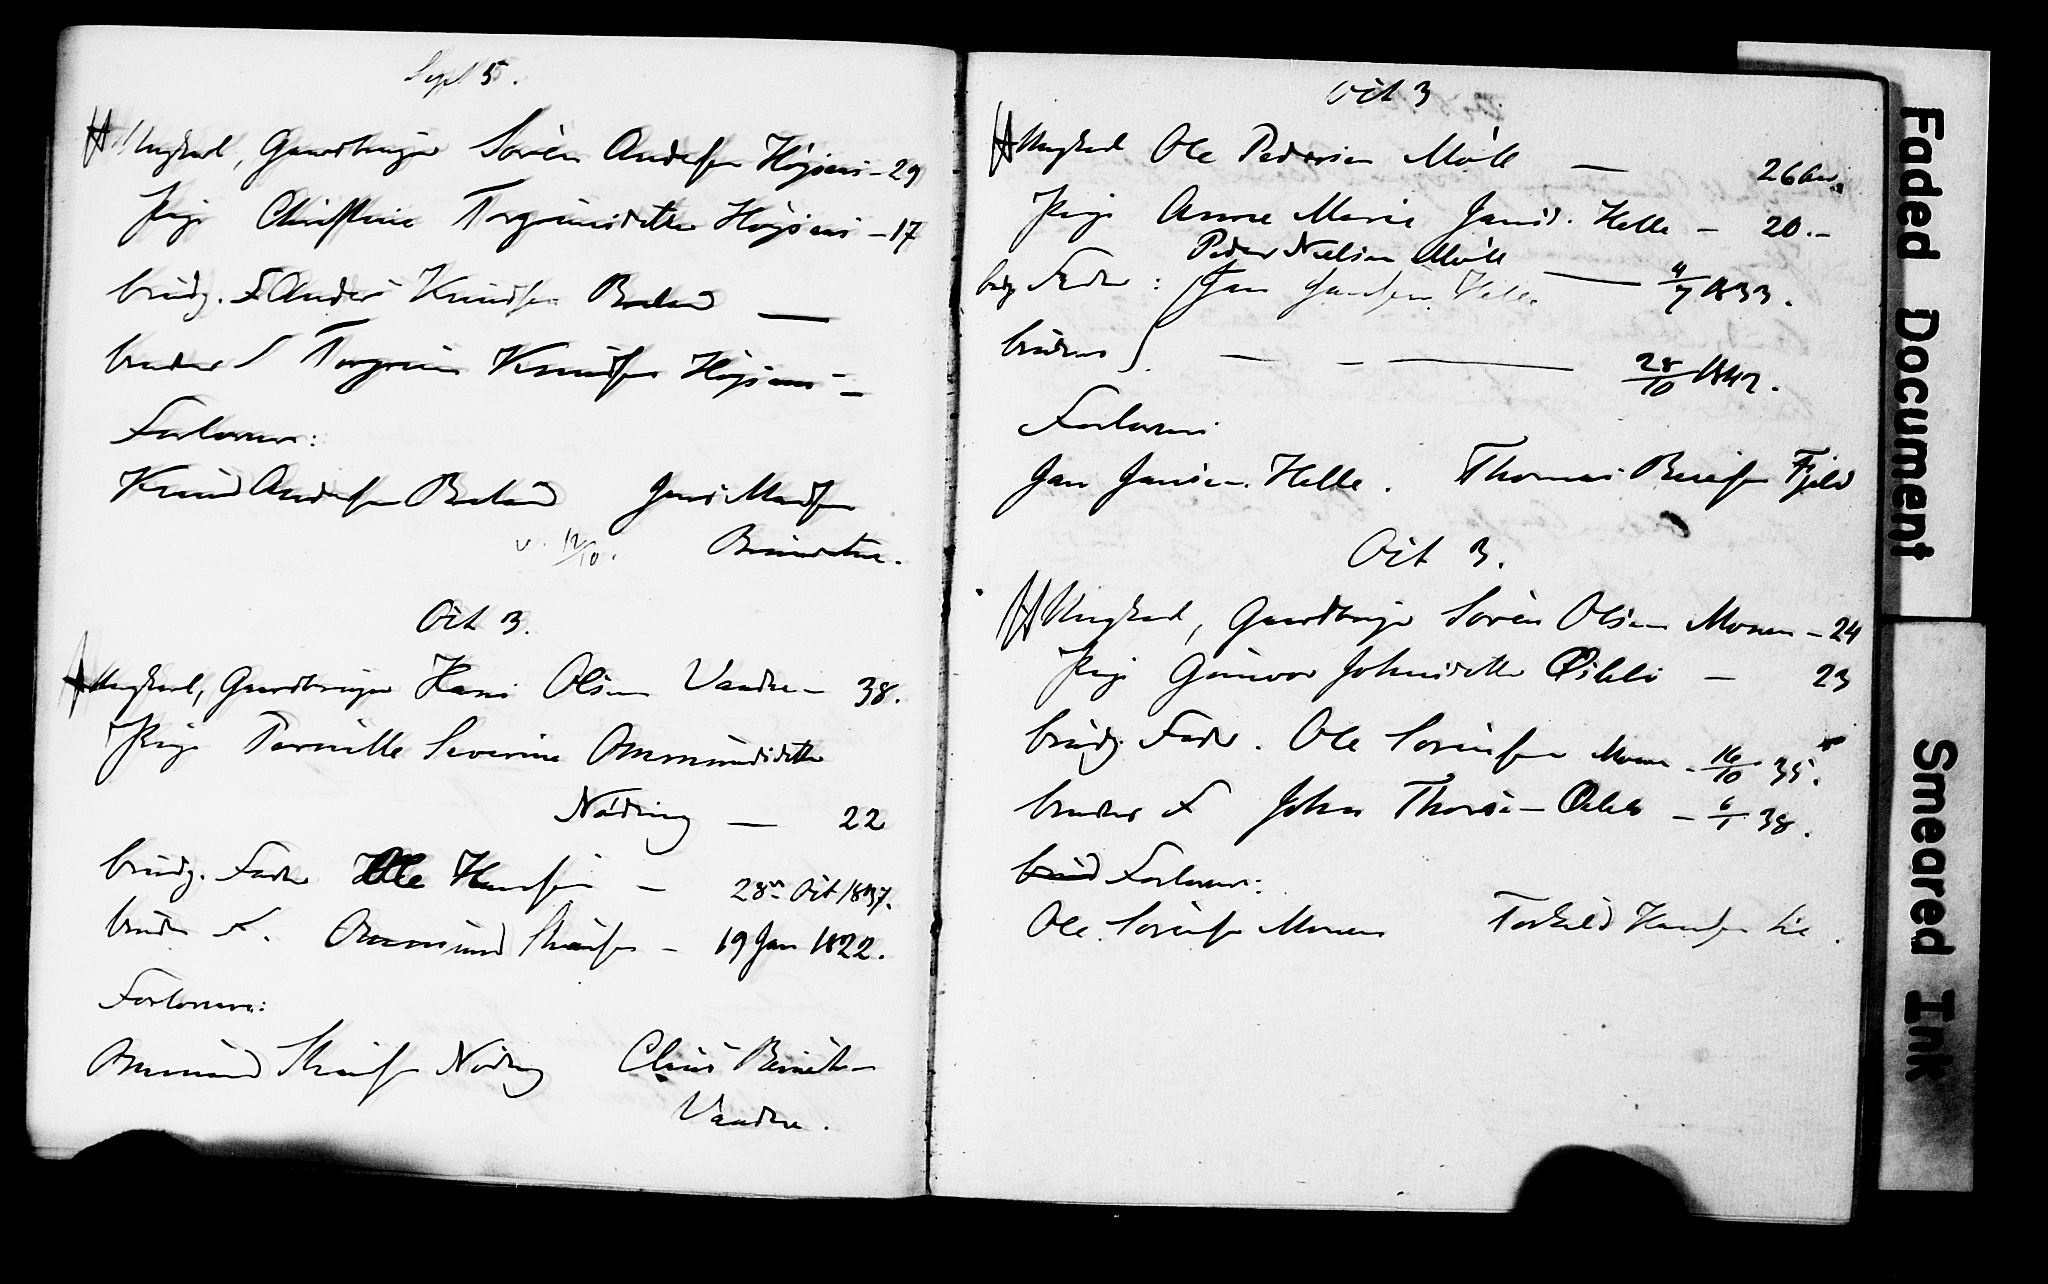 Sept 5.
Ungkarl, Gaardbruger Sören Andersen Höjsæi - 29
Pige Christine Torgrimsdatter Höjsæi - 17
brudg. F Anders Knudsen Boeland —
brudens F Torgrim Knudsen Höjsæi -
Forlovere:
Knud Andersen Boeland Jens Madsen
12/10.
Oct 3.
Ungkarl, Gaardbruger Hans Olsen Vandse - 38.
Pige Pernille Severine Ommundsdatter
Næding — 22
brudg. Fader Ole Hansen - 28de Oct 1837.
brudens F. Ommund - 19 Jan 1822.
Forlovere:
Ommund Næding Claus
Vandse.
Oct 3
Ungkarl Ole Pedersen Möll — 26 Aar.
Pige Anne Marie Jansd. Helle - 20.-
Peder Nielsen Möll
brdg Fader : Jan Jansen Helle — 4/7 1833.
brudens F. — - — 28/10 1842.
Forlovere
Jan Jansen Helle. Thomas Fjeld
Oct 3.
Ungkarl, Gaardbruger Sören Olsen Monen - 24
Pige Gunvor Johnsdatter - 23
brudg. Fader. Ole Sörensen Monen - 16/10 35.
brudens F John - 6/1 38.
brud Forlovere:
Ole Sörensen Monen Torkild Hansen Lie.
Faded Document
Smeared Ink